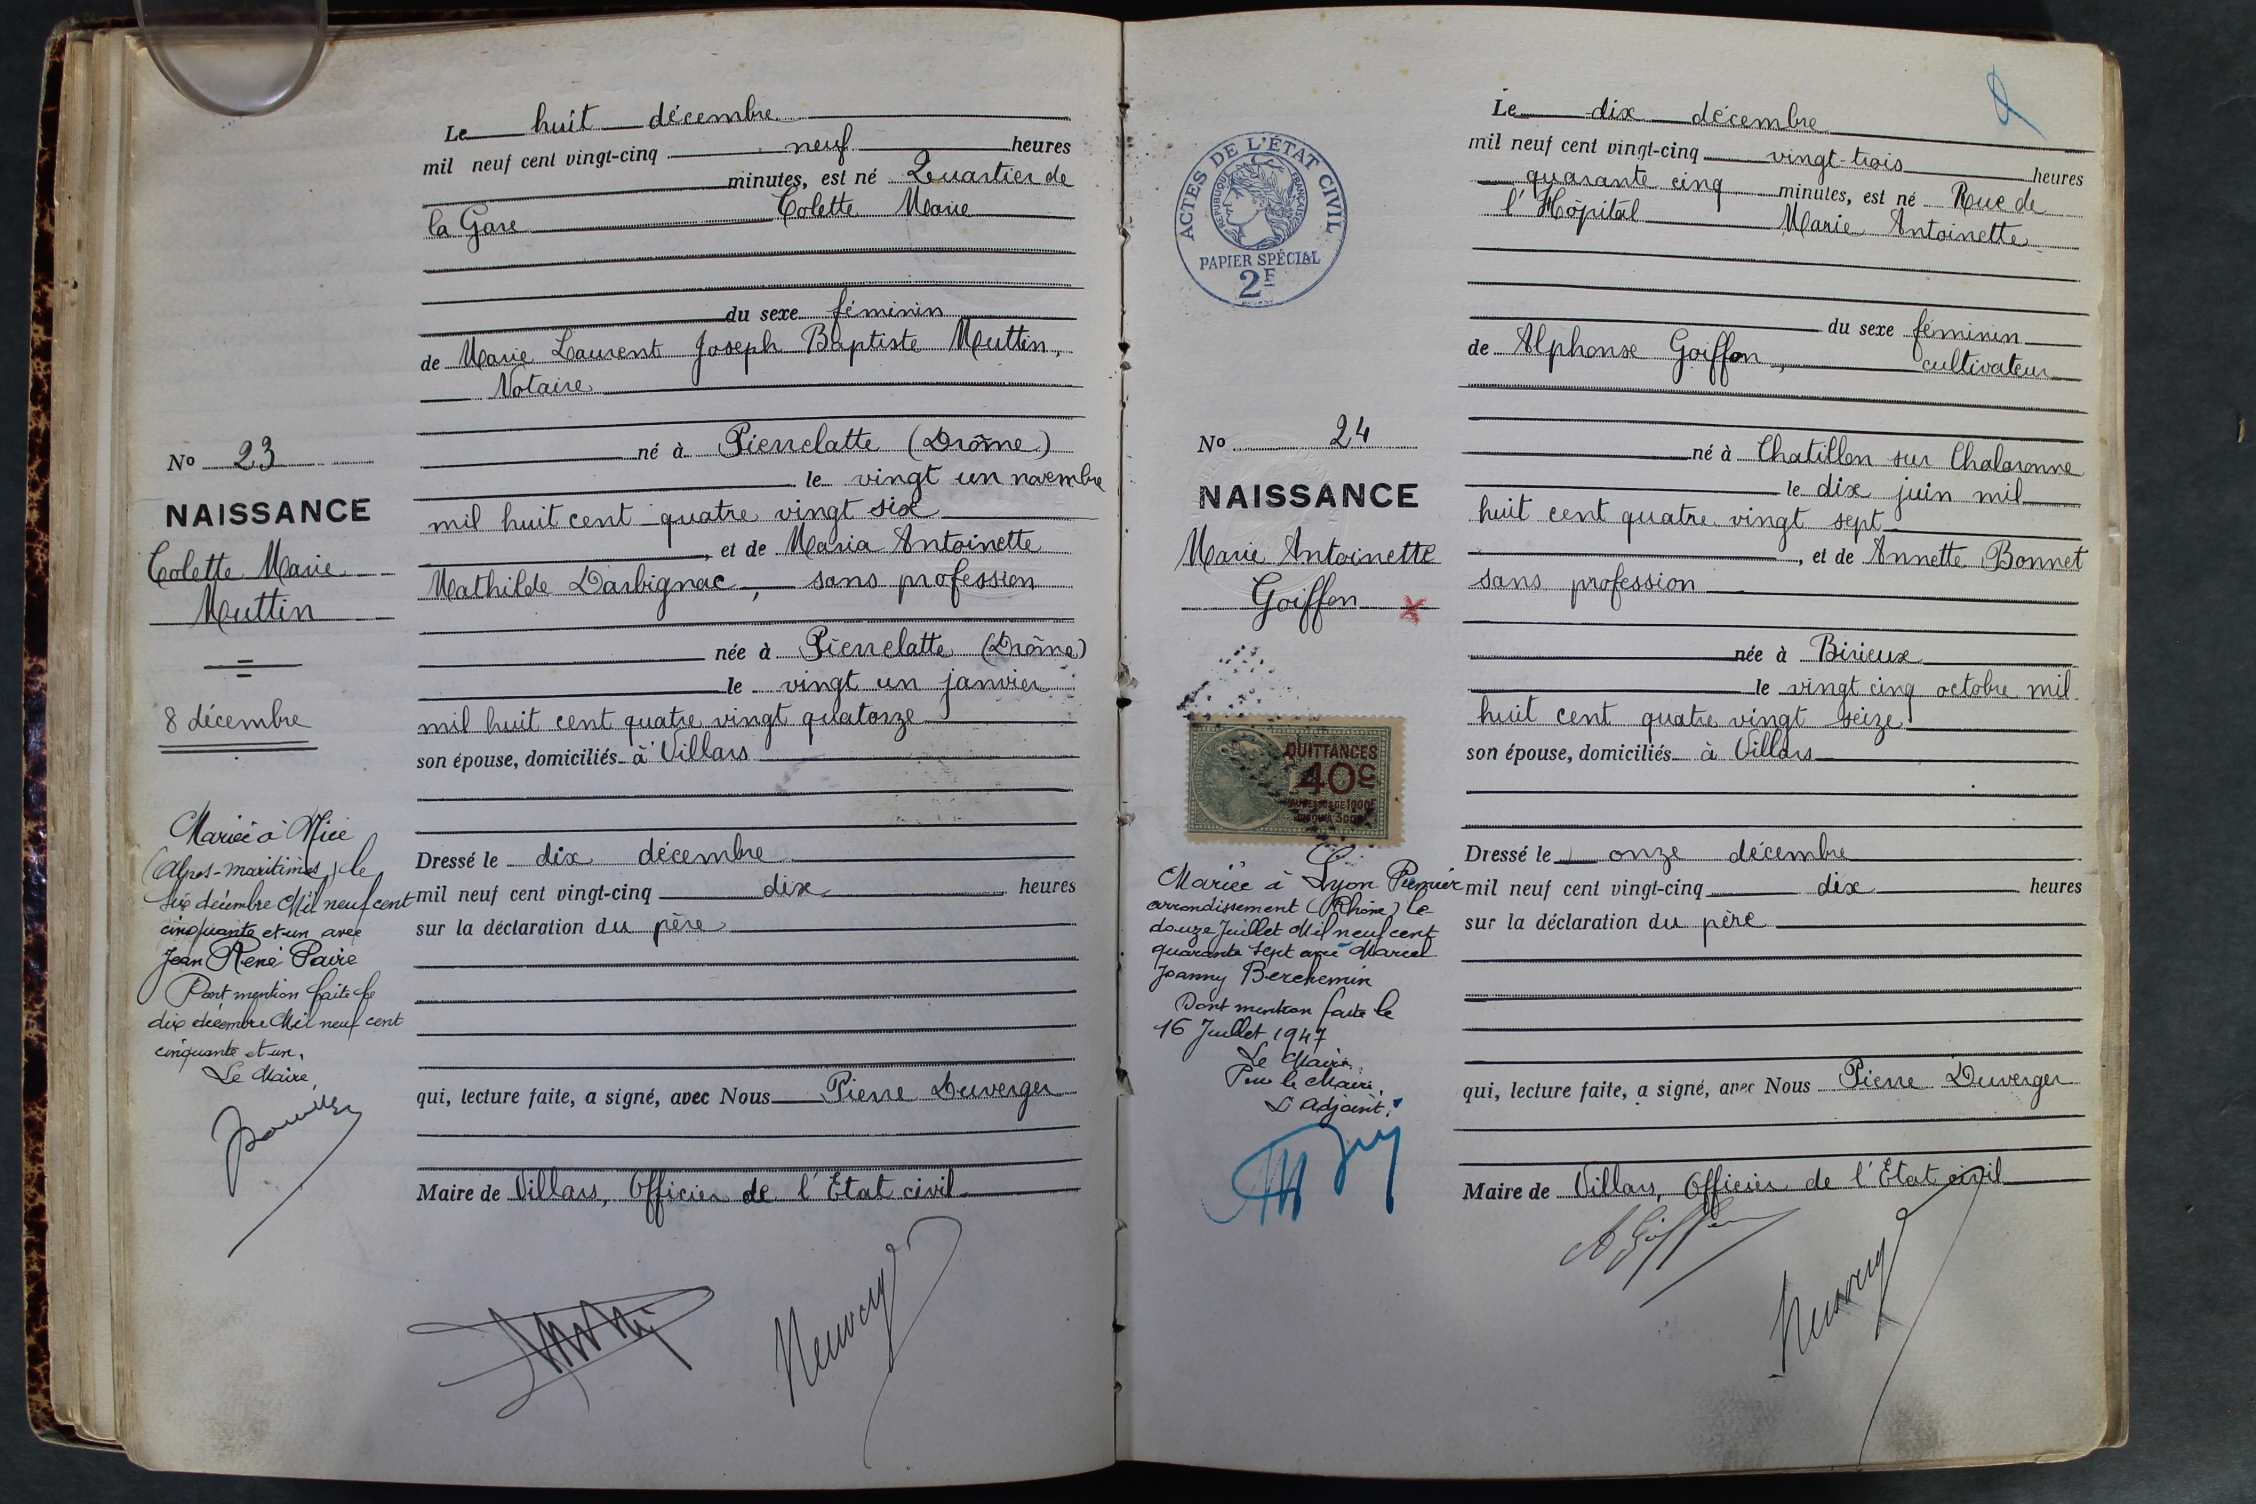 Le huit décembre
mil neuf cent vingt-cinq neuf heures
minutes, est né Quartier de
la Gare Colette Marie
du sexe féminin
de Marie Laurent Joseph Baptiste Muttin,
Notaire
né à Pierrelatte (Drôme)
le vingt un novembre
mil huit cent quatre vingt six
, et de Maria Antoinette
Mathilde Darbignac, sans profession
née à Pierrelatte (Drôme)
le vingt un janvier
mil huit cent quatre vingt quatorze
son épouse, domiciliés à Villars
Dressé le dix décembre
mil neuf cent vingt-cinq dix heures
sur la déclaration du père
qui, lecture faite, a signé, avec Nous Pierre Duverger
Maire de Villars, Officier de l'État civil
No 23
NAISSANCE
Colette Marie
Muttin
8 décembre
Mariée à Nice
(Alpes-maritimes) le
six décembre Mil neuf cent
cinquante et un avec
Jean René Paire
Dont mention faite le
dix décembre Mil neuf cent
cinquante et un.
Le Maire,
ACTES DE L'ÉTAT CIVIL
RÉPUBLIQUE FRANÇAISE
PAPIER SPÉCIAL
2F
No 24
NAISSANCE
Marie Antoinette
Goiffon
QUITTANCES
40c
Mariée à Lyon Premier
arrondissement (Rhône) le
douze Juillet Mil neuf cent
quarante sept avec Marcel
Joanny Berchemin
Dont mention faite le
16 Juillet 1947
Le Maire,
Pour le Maire,
L'adjoint,
Le dix décembre
mil neuf cent vingt-cinq vingt-trois heures
quarante cinq minutes, est né Rue de
l'Hôpital Marie Antoinette
du sexe féminin
de Alphonse Goiffon, cultivateur
né à Chatillon sur Chalaronne
le dix juin mil
huit cent quatre vingt sept
, et de Annette Bonnet
sans profession
née à Birieux
le vingt cinq octobre mil
huit cent quatre vingt seize
son épouse, domiciliés à Villars
Dressé le onze décembre
mil neuf cent vingt-cinq dix heures
sur la déclaration du père
qui, lecture faite, a signé, avec Nous Pierre Duverger
Maire de Villars, Officier de l'État civil
A Goiffon